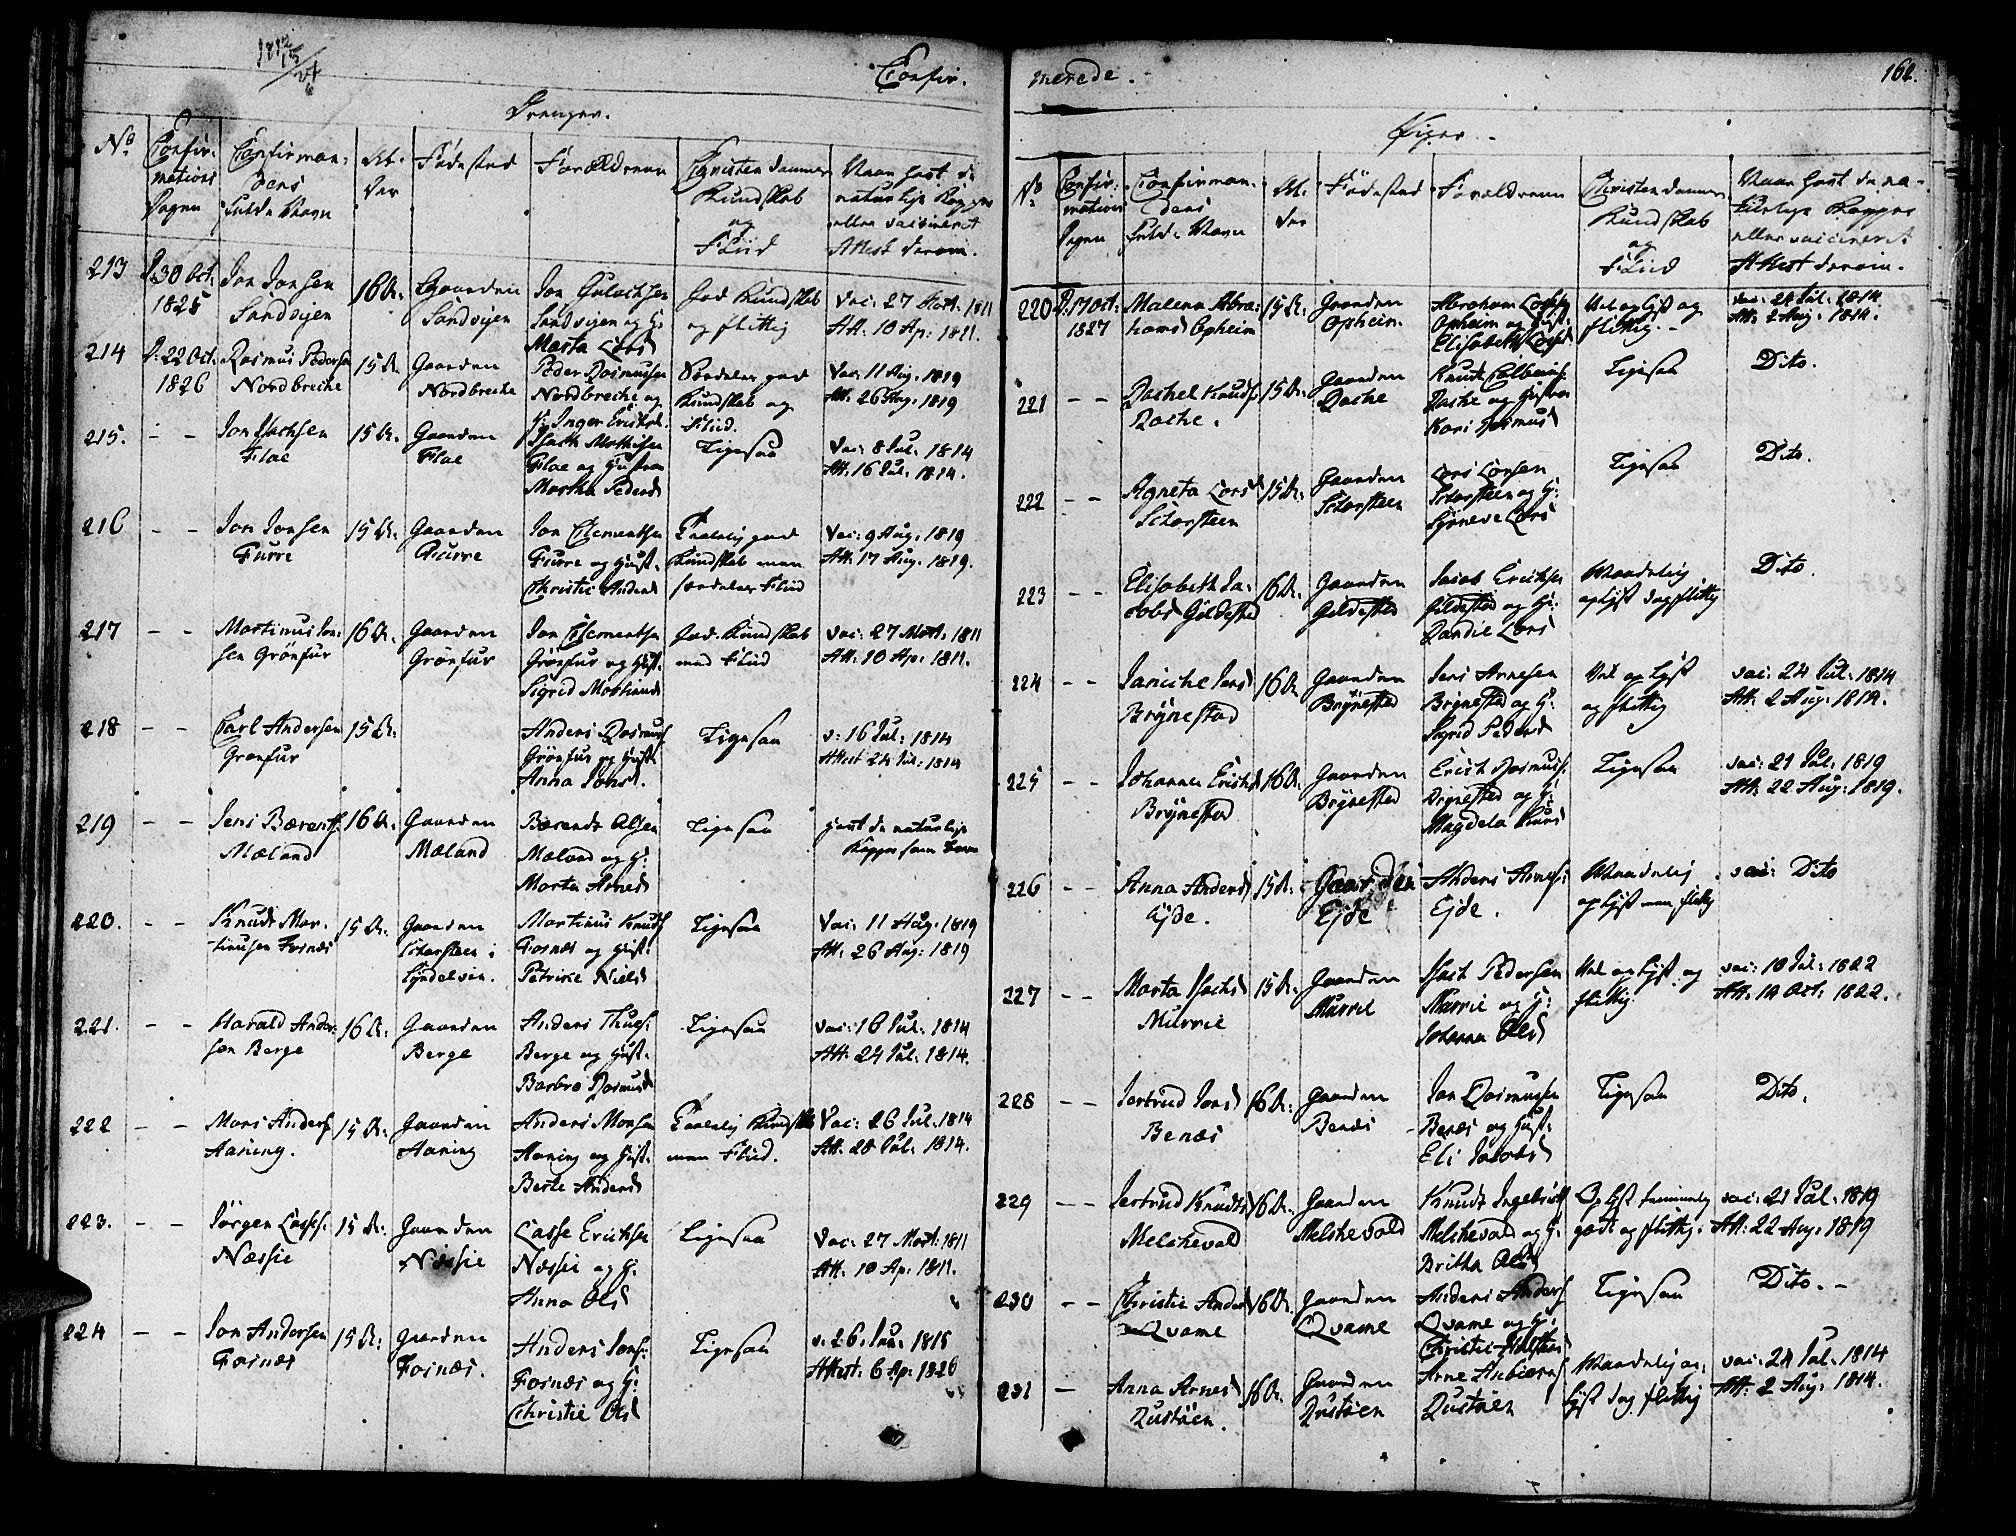 Confir-
Drenger.
No
Confir-
mations
Dagen
Confirman-
dens
fulde Navn
Al-
der
Födested
Forældrene
Christendomms
Kundskab
og
Fliid
Naar havt de
naturlige Kopper
eller vaccineret
Attest derom.
213
D. 30 Oct.
1825
Jon Jonsen
Sandvigen
16 Ar.
Gaarden
Sandvigen
Jon Gulachsen
Sandvigen og H:
Marta Lars
God Kundskab
og flittig
Vac: 27 Mart. 1811
Att. 10 Ap: 1811.
214
D: 22 Oct.
1826
Rasmus Pedersen
Nordbreche
15 Ar.
Gaarden
Nordbreche
Peder Rasmusen
Nordbreche og
H: Inger Erichsd.
Særdeles god
Kundskab og
Fliid.
Vac: 11 Aug. 1819
Att. 26 Aug. 1819
215.
- -
Jon Isachsen
Flae
15 Ar.
Gaarden
Flae
Isach Mathisen
Flae og Hustrue
Martha Pedersd
Ligesaa
Vac: 8 Jul. 1814
Att. 16 Jul. 1814.
216
- -
Jon Jonsen
Furre
15 Ar.
Gaarden
Furre
Jon Clementsen
Furre og Hust.
Christie Andersd
Taalelig god
Kundskab men
særdeles Fliid
Vac: 9 Aug. 1819
Att. 17 Aug. 1819.
217
- -
Martinus Jon-
sen Grönfur
16 Ar.
Gaarden
Grönfur
Jon Clementsen
Grönfur og Hust.
Sigrid Martinusd
God Kundskab
med Fliid
Vac: 27 Mart. 1811
Att. 10 Ap: 1811.
218
- -
Carl Andersen
Grønfur
15 Ar.
Anders Rasmus
Grönfur og Hust.
Anna Jonsd.
Ligesaa
v: 16 Jul: 1814
Attest 24 Jul: 1814
219
- -
Jens Bærents
Mæland
16 Ar.
Gaarden
Mæland
Bærendt Olsen
Mæland og H:
Marta Arnesd
Ligesaa
havt de naturlige
Kopper som Barn
220.
- -
Knudt Mar-
tinusen Fosnæs
15 Ar.
Gaarden
Schorsteen i
Hyndelven.
Martinus Knuds
Fosnæs og Hust:
Petrike Nielsd
Ligesaa
Vac: 11 Aug. 1819
Att: 26 Aug: 1819
221.
- -
Harald Ander-
sen Berge
16 Ar.
Gaarden
Berge
Anders Thues:
Berge og Hust.
Barbro Rasmusd
Ligesaa
vac: 16 Jul. 1814
Att. 24 Jul. 1814.
222
- -
Mons Anders
Aaning.
15 Ar.
Gaarden
Aaning
Anders Monsen
Aaning og Hust.
Berte Andersd
Taalelig Kundskab
men Fliid.
Vac: 26 Jul. 1814
Att. 28 Jul. 1814.
223.
- -
Jörgen Lasses:
Næssie
15 Ar.
Gaarden
Næssie
Lasse Erichsen
Næssie og H:
Anna Olsd
Ligesaa
Vac: 27 Mart. 1811
Att. 10 Ap: 1811.
224
- -
Jon Andersen
Fosnæs
15 Ar.
Gaarden
Fosnæs.
Anders Jons:
Fosnæs og H:
Christie Olsd
Ligesaa
v. 26. Jan. 1815
Attest. 6 Ap: 1826
merede.
162.
Piger.
No
Confir-
mations
Dagen
Confirman-
dens
fulde Navn
Al-
der
Födested
Forældrene
Christendomms
Kundskab
og
Fliid
Naar havt de na-
turlige Kopper
eller vaccineret
Attest derom.
220
D. 17 Oct.
1827
Malena Abra-
hamsd Opheim
15 Ar.
Gaarden
Opheim.
Abraham Larsen
Opheim og Hust.
Elisabeth Larsd
Vel oplyst og
flittig.
vac. 24 Jul: 1814.
Att. 2 Aug: 1814.
221
- -
Rachel Knuds
Rache.
15 Ar.
Gaarden
Rache
Knudt Colbeins
Rache og Hustrue
Kari Rasmusd
Ligesaa
Dito.
222
- -
Agneta Larsd
Schorsteen
15 Ar.
Gaarden
Schorsteen
Lars Larsen
Schorsteen og H:
Synneve Larsd
Ligesaa
Dito.
223
- -
Elisabeth Ja-
cobsd Gildestad
16 Ar.
Gaarden
Gildestad
Jacob Erichsen
Gildestad og H:
Randie Larsd
Maadelig
oplyst dog flittig
Dito.
224
- -
Janiche Jensd
Brÿnestad
16 Ar
Gaarden
Brÿnestad
Jens Arnesen
Brÿnestad og H:
Sigrid Pedersd
Vel oplyst
og flittig
vac: 24 Jul: 1814
Att. 2 Aug: 1814.
225
- -
Johanna Erichsd
Brÿnestad
16 Ar.
Gaarden
Brÿnestad
Erich Rasmus:
Brynestad og H:
Magdela Knuds
Ligesaa
vac: 21 Jul. 1819
Att. 22 Aug: 1819.
226
- -
Anna Andersd
Ejde.
15 Ar.
Gaarden
Ejde
Anders Arnes:
Ejde.
Maadelig
oplyst men flittig
vac: Dito
227
- -
Marta Isachsd
Murrie
15 Ar.
Gaarden
Murrie
Isach Pedersen
Murrie og H:
Johanna Olsd
Vel oplyst og
flittig
vac: 10 Jul: 1822
Att. 14 Oct. 1822.
228
- -
Jertrud Jonsd
Benæs
16 Ar.
Gaarden
Benæs
Jon Rasmusen
Benæs og Hust:
Eli Jacobsd
Ligesaa
Dito.
229
- -
Jertrud Knudtsd
Melchevold
16 Ar.
Gaarden
Melchevold
Knudt Ingebrigts
Melchevold og H:
Britha Olsd
Oplyst temmelig
godt og flittig.
vac: 21 Jul. 1819
Att: 22 Aug: 1819
230
- -
Christie Andersd
Qvame
16 Ar.
Gaarden
Qvame
Anders Anders
Qvame og H:
Ligesaa
Dito. -
231
-
Anna Arnesd
Rustöen.
16 Ar.
Gaarden
Rustöen
Arne Anbiörns
Rustöen
Maadelig op-
lyst dog flittig
vac: 24 Jul. 1814
Att. 2 Aug: 1814.